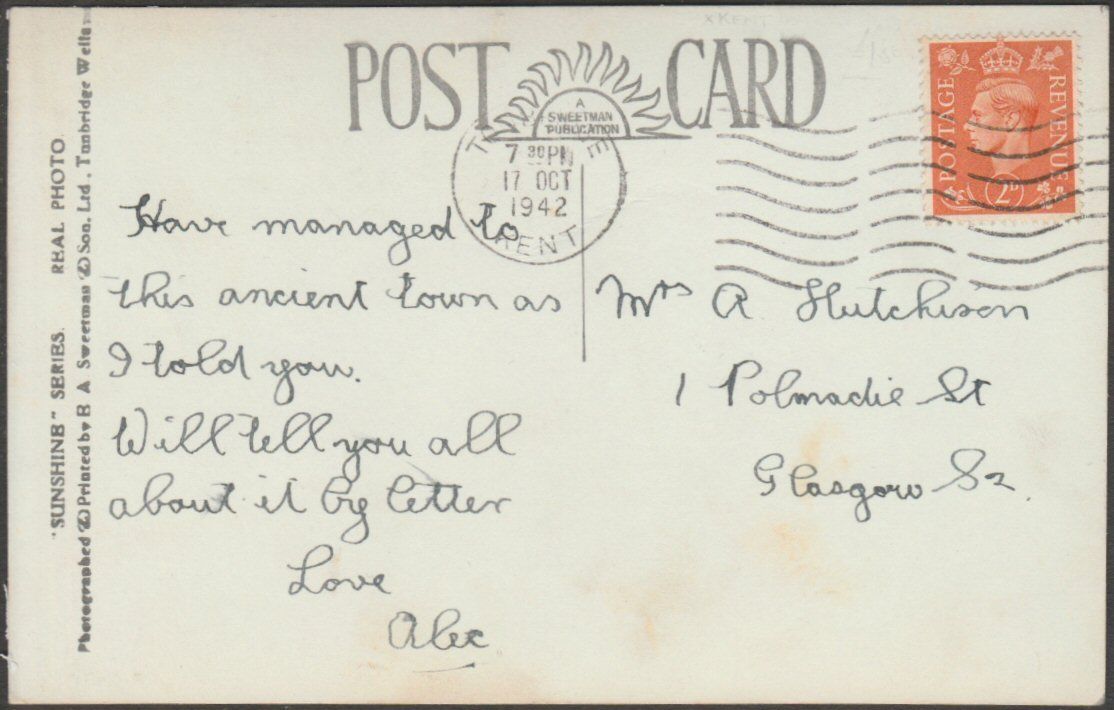 x KENT
POST CARD
A
SWEETMAN
PUBLICATION
POSTAGE REVENUE
2D
7 30 PM
17 OCT
1942
KENT
"SUNSHINE" SERIES. REAL PHOTO.
Photographed & Printed by B A Sweetman & Son. Ltd., Tunbridge Wells
Have managed to
this ancient town as
I told you.
Will tell you all
about it by letter
Love
Alec
Mrs A. Hutchison
1 Polmadie St
Glasgow S2.